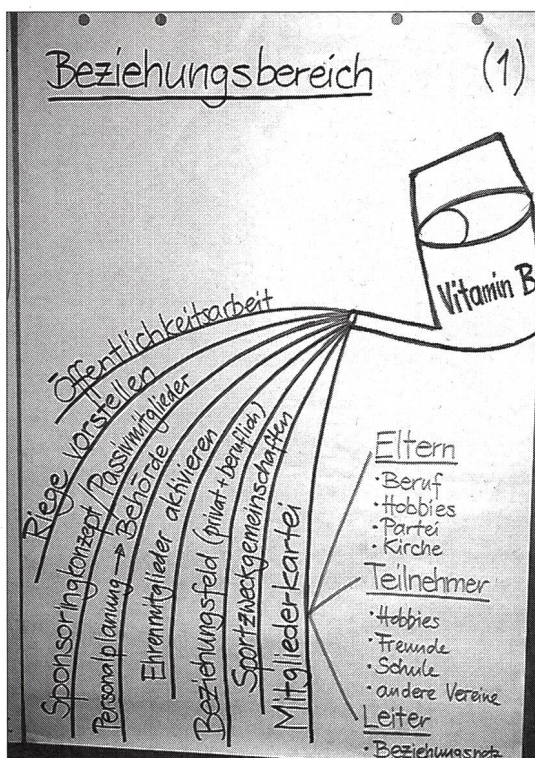 Beziehungsbereich (1)
Vitamin B
Öffentlichkeitsarbeit
Riege vorstellen
Sponsoringkonzept/Passivmitglieder
Personalplanung → Behörde
Ehrenmitglieder aktivieren
Beziehungsfeld (privat + beruflich)
Sportzweckgemeinschaften
Mitgliederkartei
Eltern
· Beruf
· Hobbies
· Partei
· Kirche
Teilnehmer
· Hobbies
· Freunde
· Schule
· andere Vereine
Leiter
· Beziehungsnetz